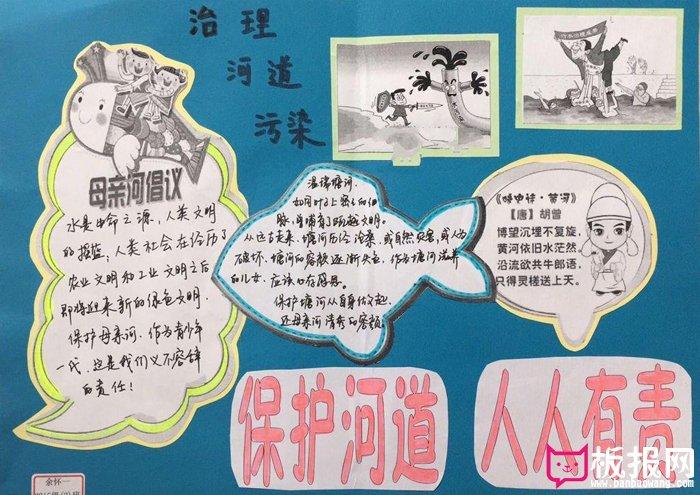 治理
河道
污染
母亲河倡议
水是生命之源,人类文明
的摇篮,人类社会在经历了
农业文明和工业文明之后
即将迎来新的绿色文明,
保护母亲河,作为青少年
一代,这是我们义不容辞
的责任!
温瑞塘河
如同叶子上密密的细
脉,哺育了瓯越文明。
从远古走来,塘河历经沧桑,或自然灾害,或人为
破坏,塘河的容颜逐渐失色,作为塘河滋养
的儿女,应该心存
保护塘河从自身做起,
还母亲河清秀的容颜
《咏史诗·黄河》
【唐】胡曾
博望沉埋不复旋,
黄河依旧水茫然
沿流欲共牛郎语,
只得灵槎送上天。
保护河道
人人有责
余怀一
板报网
www.banbaowang.com